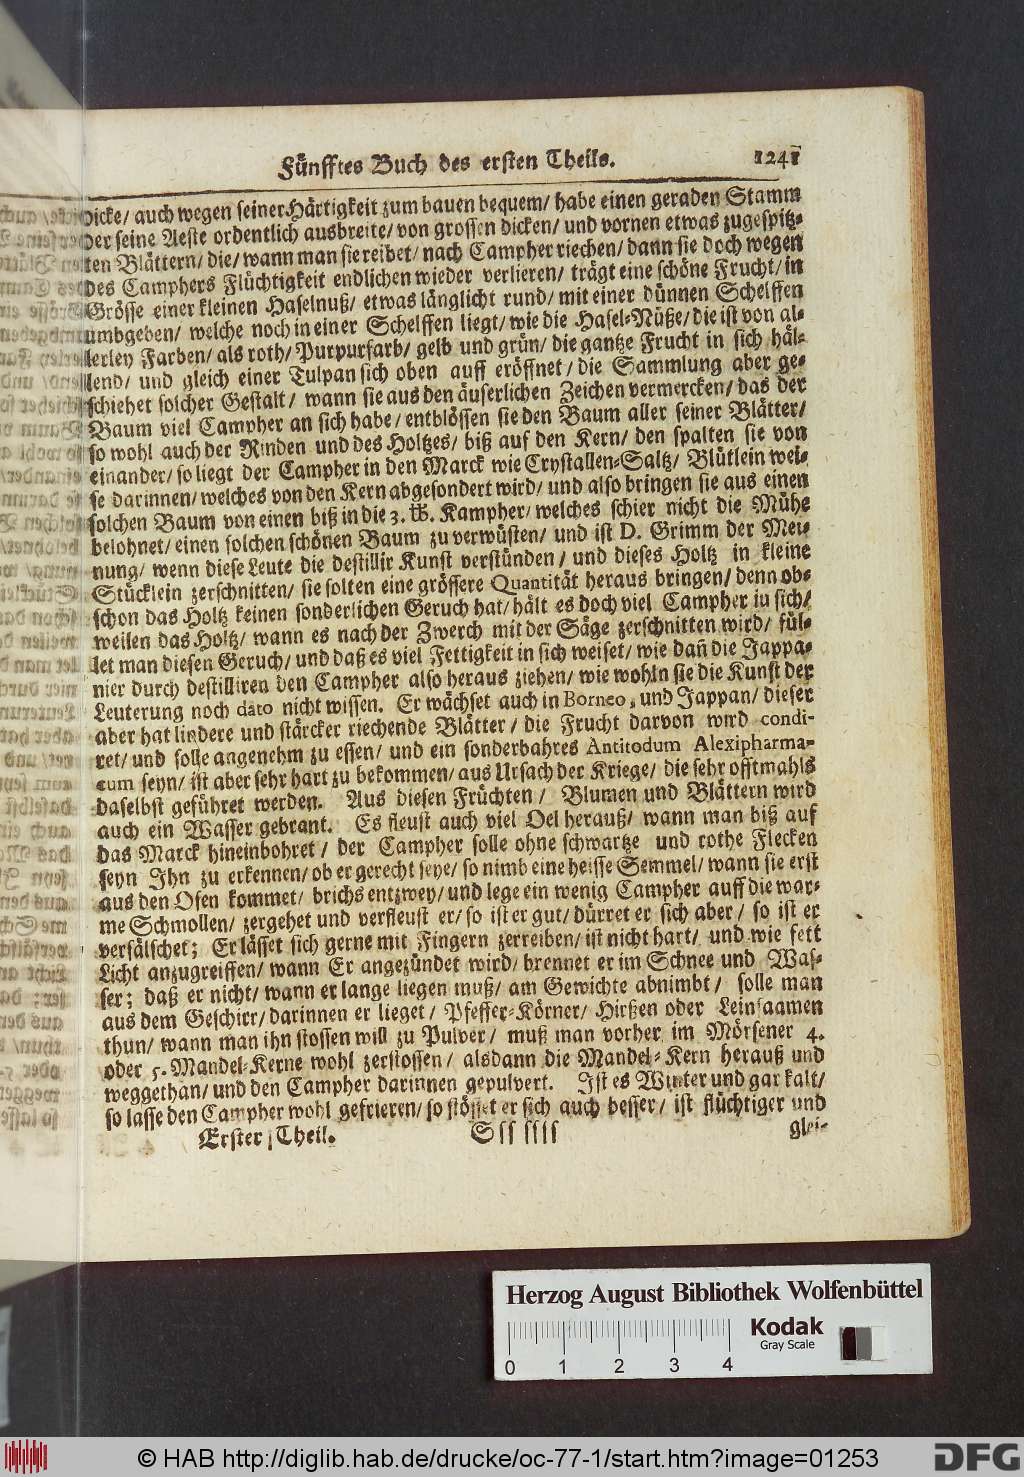 Fünfftes Buch des ersten Theils. 1241
Dicke/ auch wegen seiner Härtigkeit zum bauen bequem/ habe einen geraden Stamm
der seine Aeste ordentlich ausbreite/ von grossen dicken/ und vornen etwas zugespitz-
ten Blättern/ die/ wann man sie reibet/ nach Campher riechen/ dann sie doch wegen
des Camphers Flüchtigkeit endlichen wieder verlieren/ trägt eine schöne Frucht/ in
Grösse einer kleinen Haselnuß/ etwas länglicht rund/ mit einer dünnen Schelffen
umbgeben/ welche noch in einer Schelffen liegt/ wie die Hasel-Nüße/ die ist von al-
lerley Farben/ als roth/ Purpurfarb/ gelb und grün/ die gantze Frucht in sich häl-
lend/ und gleich einer Tulpan sich oben auff eröffnet/ die Sammlung aber ge-
schiehet solcher Gestalt/ wann sie aus den äuserlichen Zeichen vermercken/ das der
Baum viel Campher an sich habe/ entblössen sie den Baum aller seiner Blätter/
so wohl auch der Rinden und des Holtzes/ biß auf den Kern/ den spalten sie von
einander/ so liegt der Campher in den Marck wie Crystallen-Saltz/ Blütlein wei-
se darinnen/ welches von den Kern abgesondert wird/ und also bringen sie aus einen
solchen Baum von einen biß in die 3. ℔. Kampher/ welches schier nicht die Mühe
belohnet/ einen solchen schönen Baum zu verwüsten/ und ist D. Grimm der Mei-
nung/ wenn diese Leute die destillir Kunst verstünden/ und dieses Holtz in kleine
Stücklein zerschnitten/ sie solten eine grössere Quantität heraus bringen/ denn ob-
schon das Holtz keinen sonderlichen Geruch hat/ hält es doch viel Campher in sich/
weilen das Holtz/ wann es nach der Zwerch mit der Säge zerschnitten wird/ fül-
let man diesen Geruch/ und daß es viel Fettigkeit in sich weiset/ wie dañ die Jappa-
nier durch destilliren den Campher also heraus ziehen/ wie wohln sie die Kunst der
Leuterung noch dato nicht wissen. Er wächset auch in Borneo, und Jappan/ dieser
aber hat lindere und stärcker riechende Blätter/ die Frucht darvon wird condi-
ret/ und solle angenehm zu essen/ und ein sonderbahres Antitodum Alexipharma-
cum seyn/ ist aber sehr hart zu bekommen/ aus Ursach der Kriege/ die sehr offtmahls
daselbst geführet werden. Aus diesen Früchten/ Blumen und Blättern wird
auch ein Wasser gebrant. Es fleust auch viel Oel herauß/ wann man biß auf
das Marck hineinbohret/ der Campher solle ohne schwartze und rothe Flecken
seyn Ihn zu erkennen/ ob er gerecht seye/ so nimb eine heisse Semmel/ wann sie erst
aus den Ofen kommet/ brichs entzwey/ und lege ein wenig Campher auff die war-
me Schmollen/ zergehet und verfleust er/ so ist er gut/ dürret er sich aber/ so ist er
versälschet; Er lässet sich gerne mit Fingern zerreiben/ ist nicht hart/ und wie fett
Licht anzugreiffen/ wann Er angezündet wird/ brennet er im Schnee und Was-
ser; daß er nicht/ wann er lange liegen muß/ am Gewichte abnimbt/ solle man
aus dem Geschirr/ darinnen er lieget/ Pfeffer-Körner/ Hirßen oder Leinsaamen
thun/ wann man ihn stossen will zu Pulver/ muß man vorher im Mörsener 4.
oder 5. Mandel-Kerne wohl zerstossen/ alsdann die Mandel-Kern herauß und
weggethan/ und den Campher darinnen gepulvert. Ist es Winter und gar kalt/
so lasse den Campher wohl gefrieren/ so stösset er sich auch besser/ ist flüchtiger und
Erster Theil. Sss ssss glei-
Herzog August Bibliothek Wolfenbüttel
Kodak
Gray Scale
0 1 2 3 4
© HAB http://diglib.hab.de/drucke/oc-77-1/start.htm?image=01253
DFG